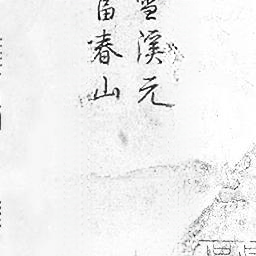 雪溪元
富春山